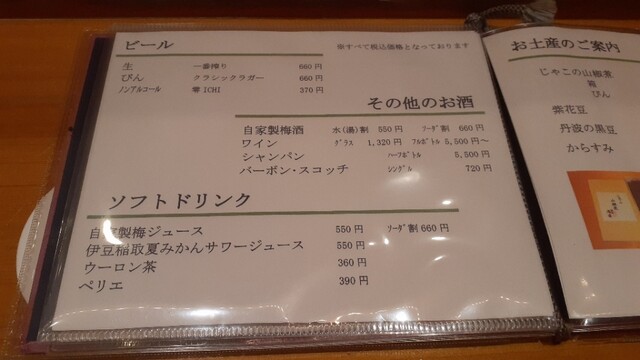 ビール
※すべて税込価格となっております
生 一番搾り 660円
びん クラシックラガー 660円
ノンアルコール 零ICHI 370円
その他のお酒
自家製梅酒 水(湯)割 550円 ソーダ割 660円
ワイン グラス 1,320円 フルボトル 5,500円～
シャンパン ハーフボトル 5,500円
バーボン・スコッチ シングル 720円
ソフトドリンク
自家製梅ジュース 550円 ソーダ割 660円
伊豆稲取夏みかんサワージュース 550円
ウーロン茶 360円
ペリエ 390円
お土産のご案内
じゃこの山椒煮
箱
びん
紫花豆
丹波の黒豆
からすみ